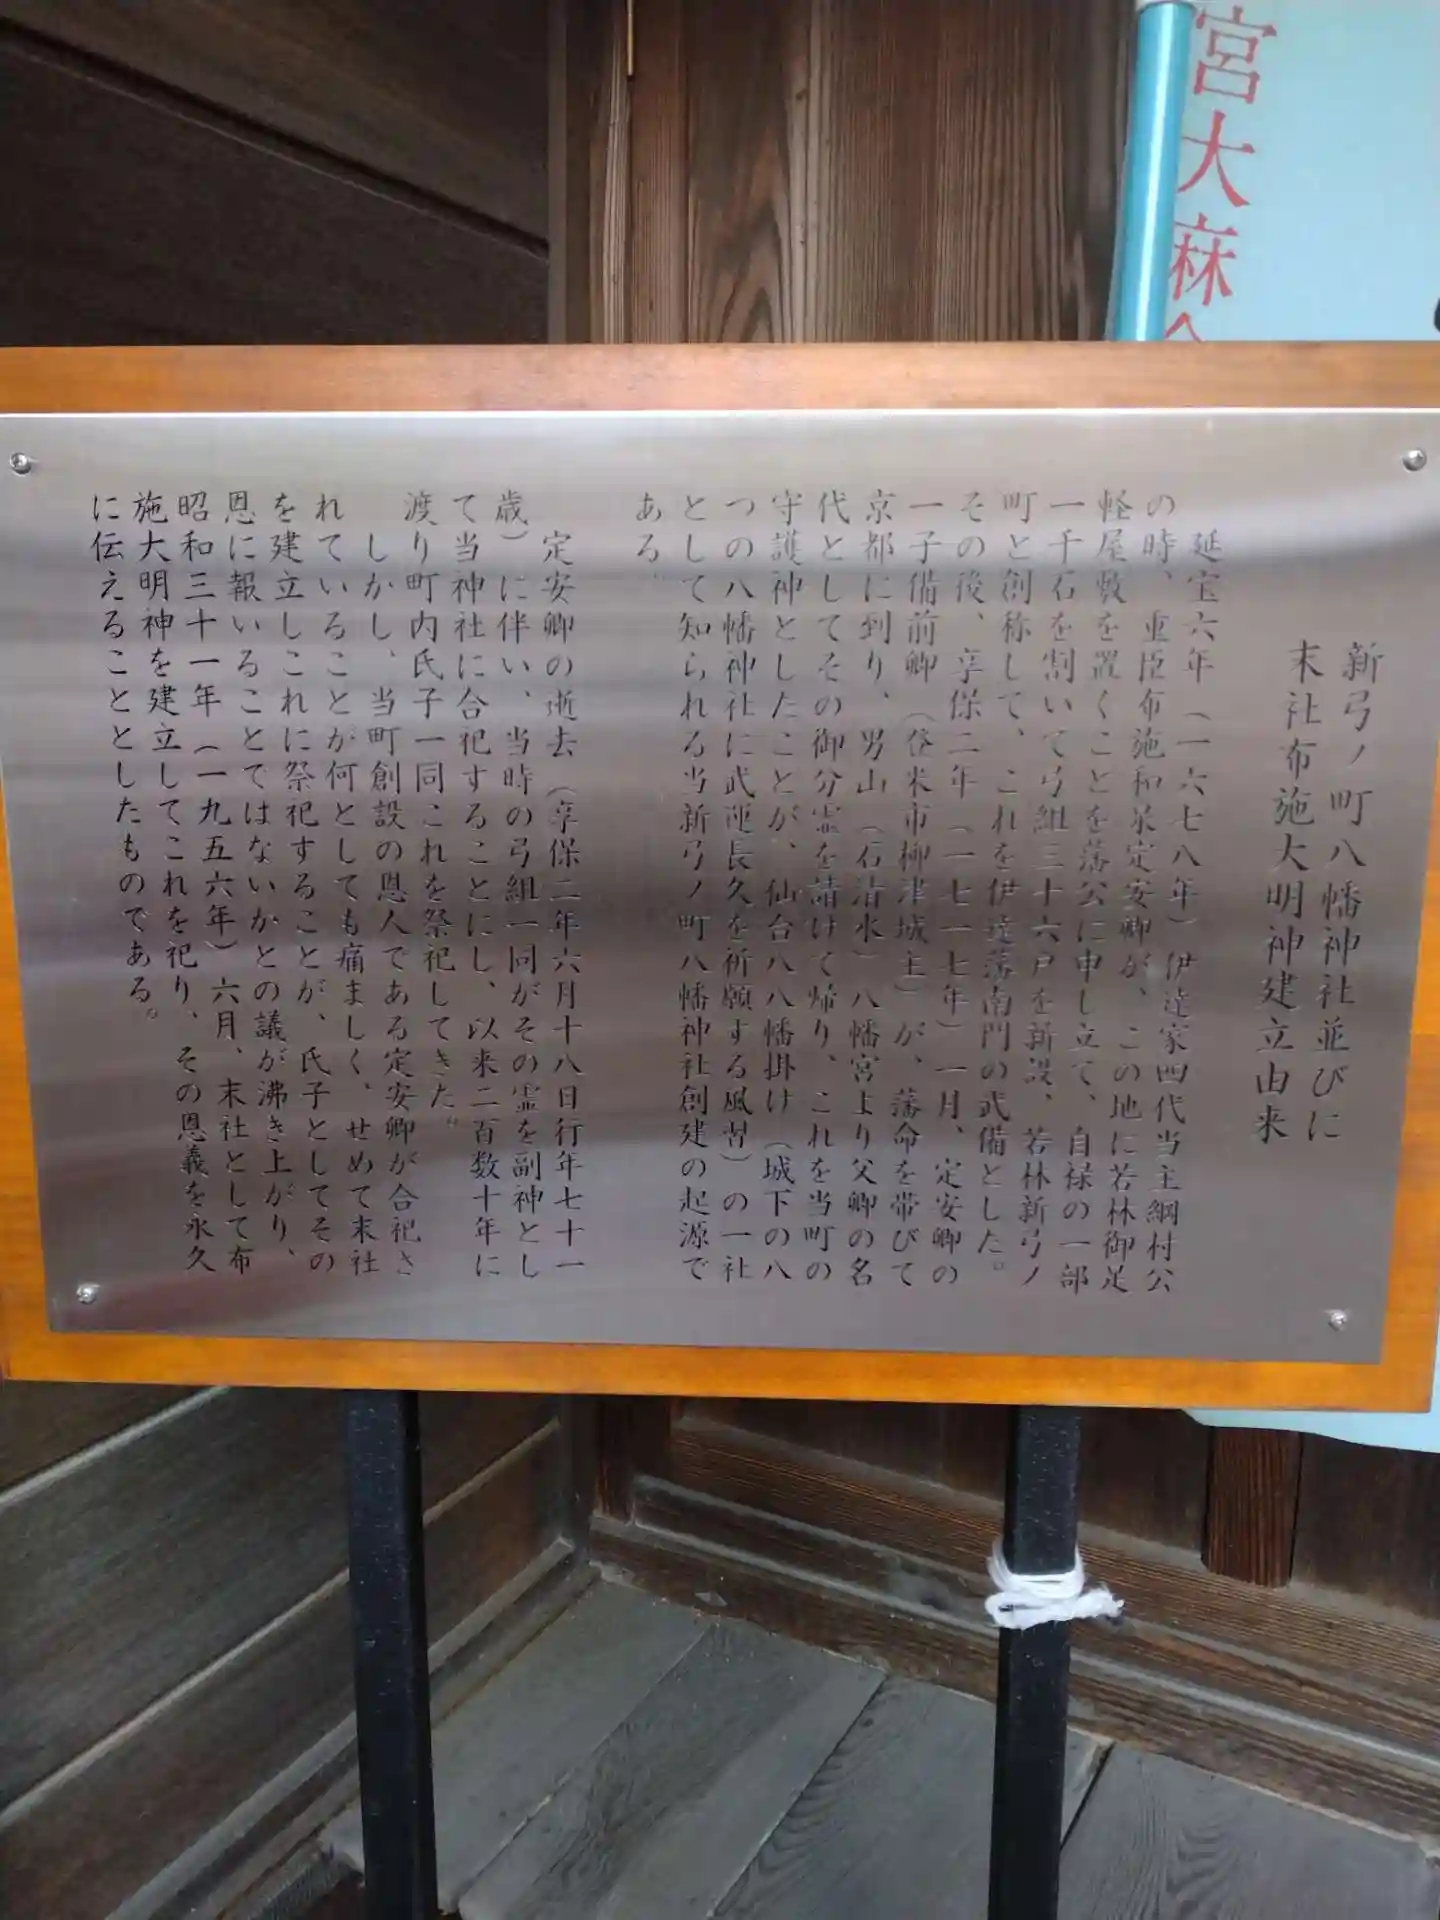 宮大麻
新弓ノ町八幡神社並びに
末社布施大明神建立由来
延宝六年(一六七八年)伊達家四代当主綱村公
の時、重臣布施和泉定安卿が、この地に若林御足
軽屋敷を置くことを藩公に申し立て、自禄の一部
一千石を割いて弓組三十六戸を新設、若林新弓ノ
町と創称して、これを伊達藩南門の武備とした。
その後、享保二年(一七一七年)一月、定安卿の
一子備前卿(登米市柳津城主)が、藩命を帯びて
京都に到り、男山(石清水)八幡宮より父卿の名
代としてその御分霊を請けて帰り、これを当町の
守護神としたことが、仙台八八幡掛け(城下の八
つの八幡神社に武運長久を祈願する風習)の一社
として知られる当新弓ノ町八幡神社創建の起源で
ある。
定安卿の逝去(享保二年六月十八日行年七十一
歳)に伴い、当時の弓組一同がその霊を副神とし
て当神社に合祀することにし、以来二百数十年に
渡り町内氏子一同これを祭祀してきた。
しかし、当町創設の恩人である定安卿が合祀さ
れていることが何としても痛ましく、せめて末社
を建立しこれに祭祀することが、氏子としてその
恩に報いることではないかとの議が沸き上がり、
昭和三十一年(一九五六年)六月、末社として布
施大明神を建立してこれを祀り、その恩義を永久
に伝えることとしたものである。